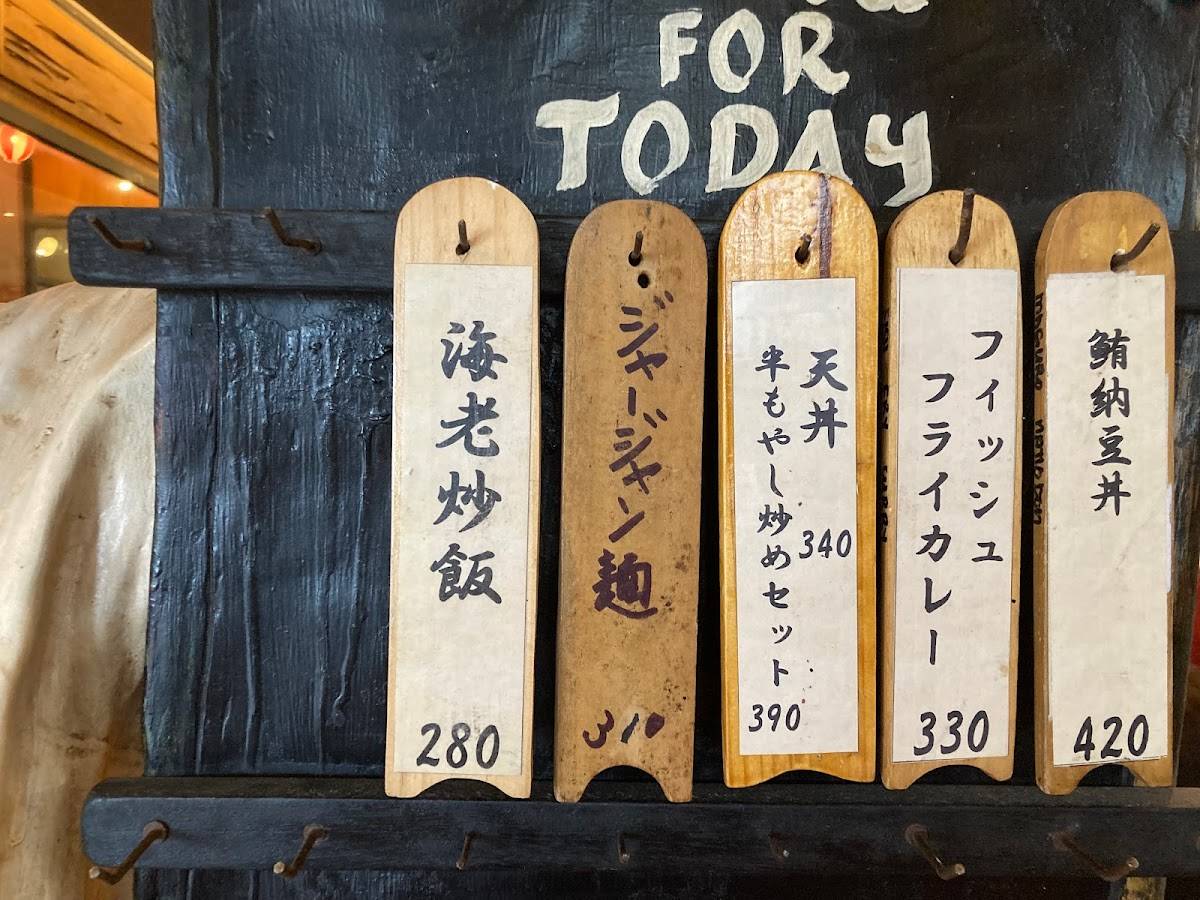 FOR
TODAY
海老炒飯
280
ジャージャン麺
310
天丼
340
半もやし炒めセット
390
フィッシュ
フライカレー
330
鮪納豆丼
420